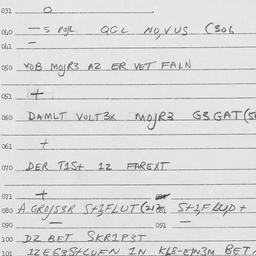 031 O
040 — S POJL QGL NO,VUS (306
041 —
050 XOB MOJR3 AZ ER VET FALN
051 +
060 DAMLT VOLT3X MOJR3 G3GAT(50
061 +
070 DER T1S+ 1Z FAREXT
071 +
080 A GRO/S3R S+1FLUT(212 S+1F
090 — 091 —
100 DZ BET SKR1P3T
101 1ZEG3S+LUFN 1N KLS-E1N3M BET